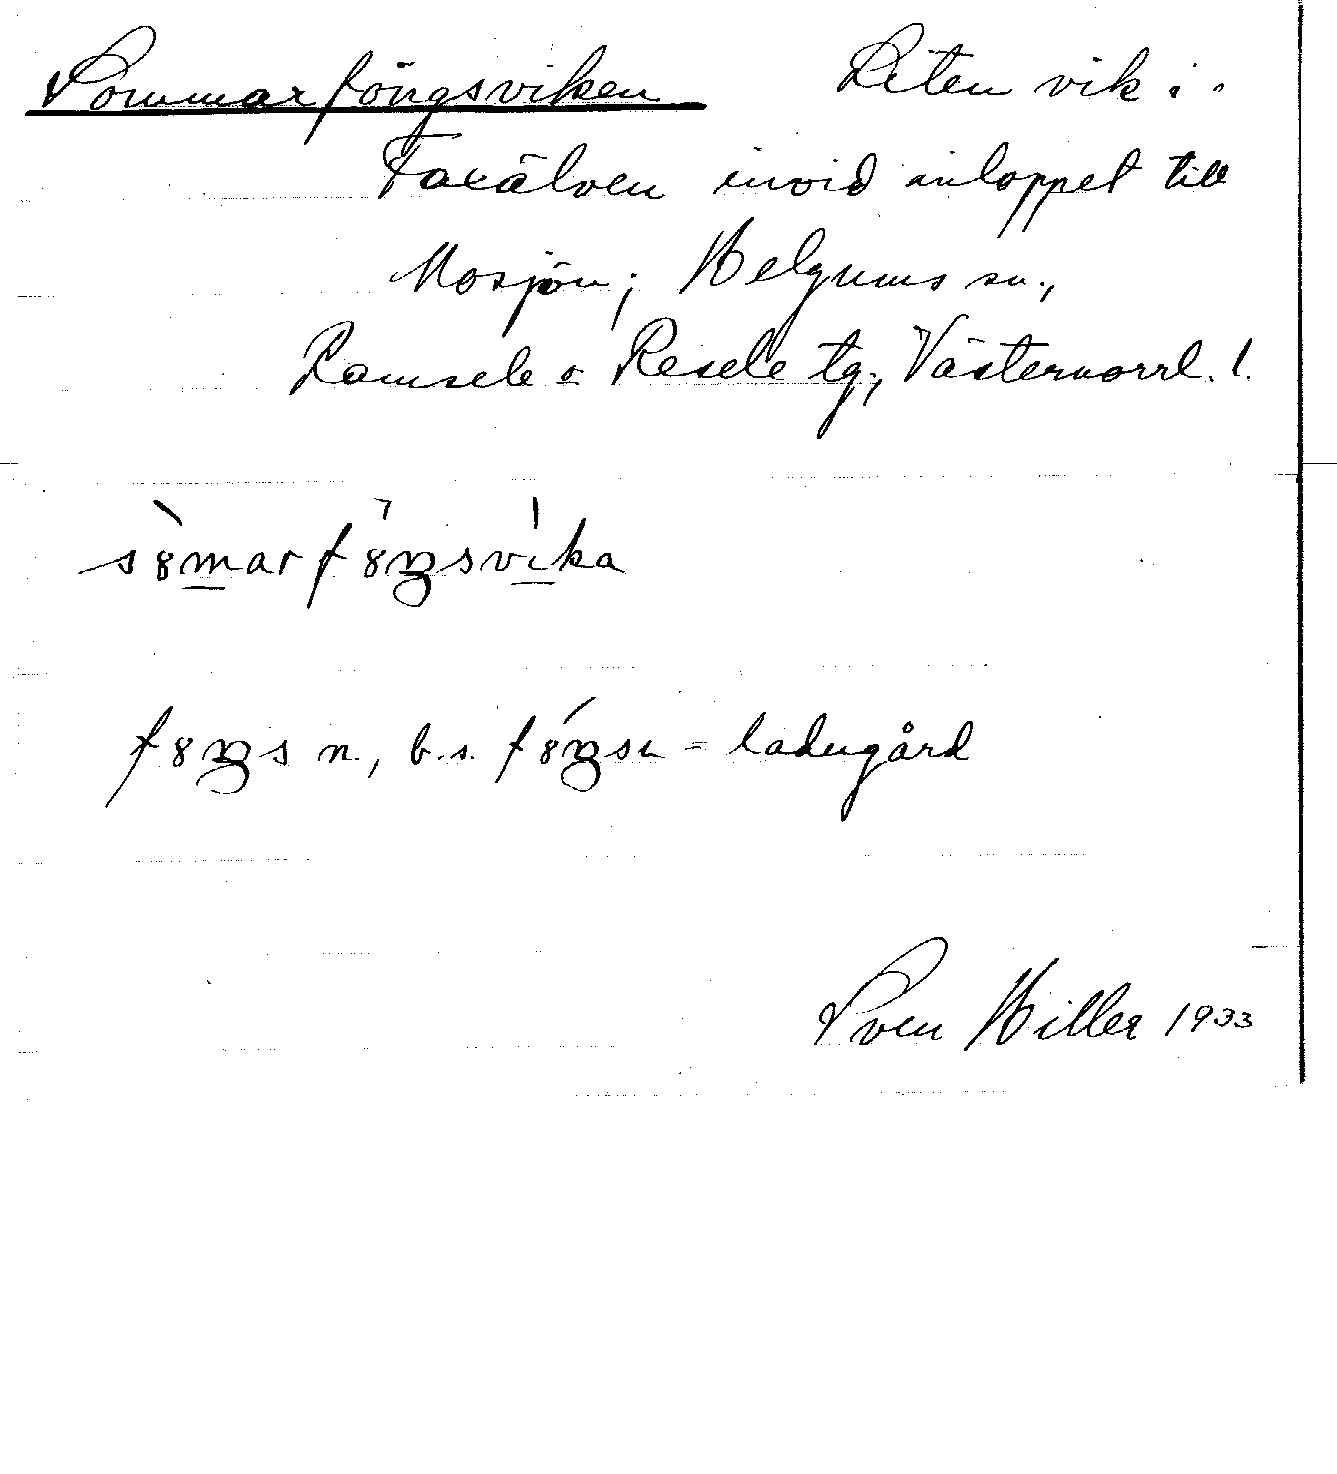 Sommarföngsviken Liten vik i
Faxälven invid inloppet till
Mosjön; Helgums sn.,
Ramsele o. Resele tg., Västernorrl. l.
s8marf8ŋsvika
f8ŋs n., b.s. f8́ŋsɩ = ladugård
Sven Hiller 1933